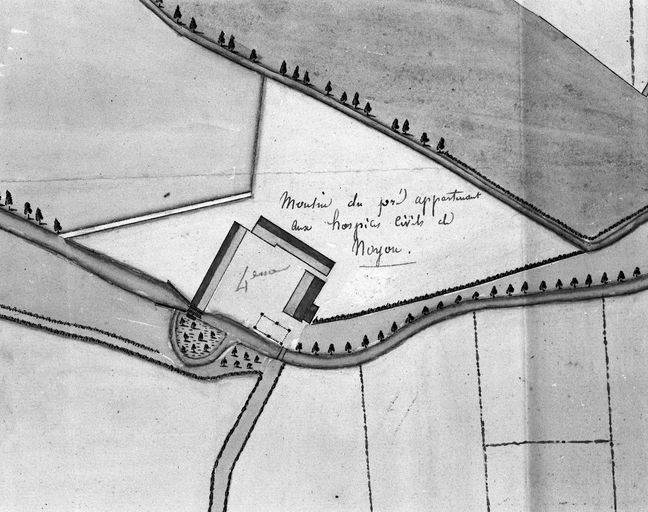 Moulin du pré appartenant
aux hospices civils de
Noyon.